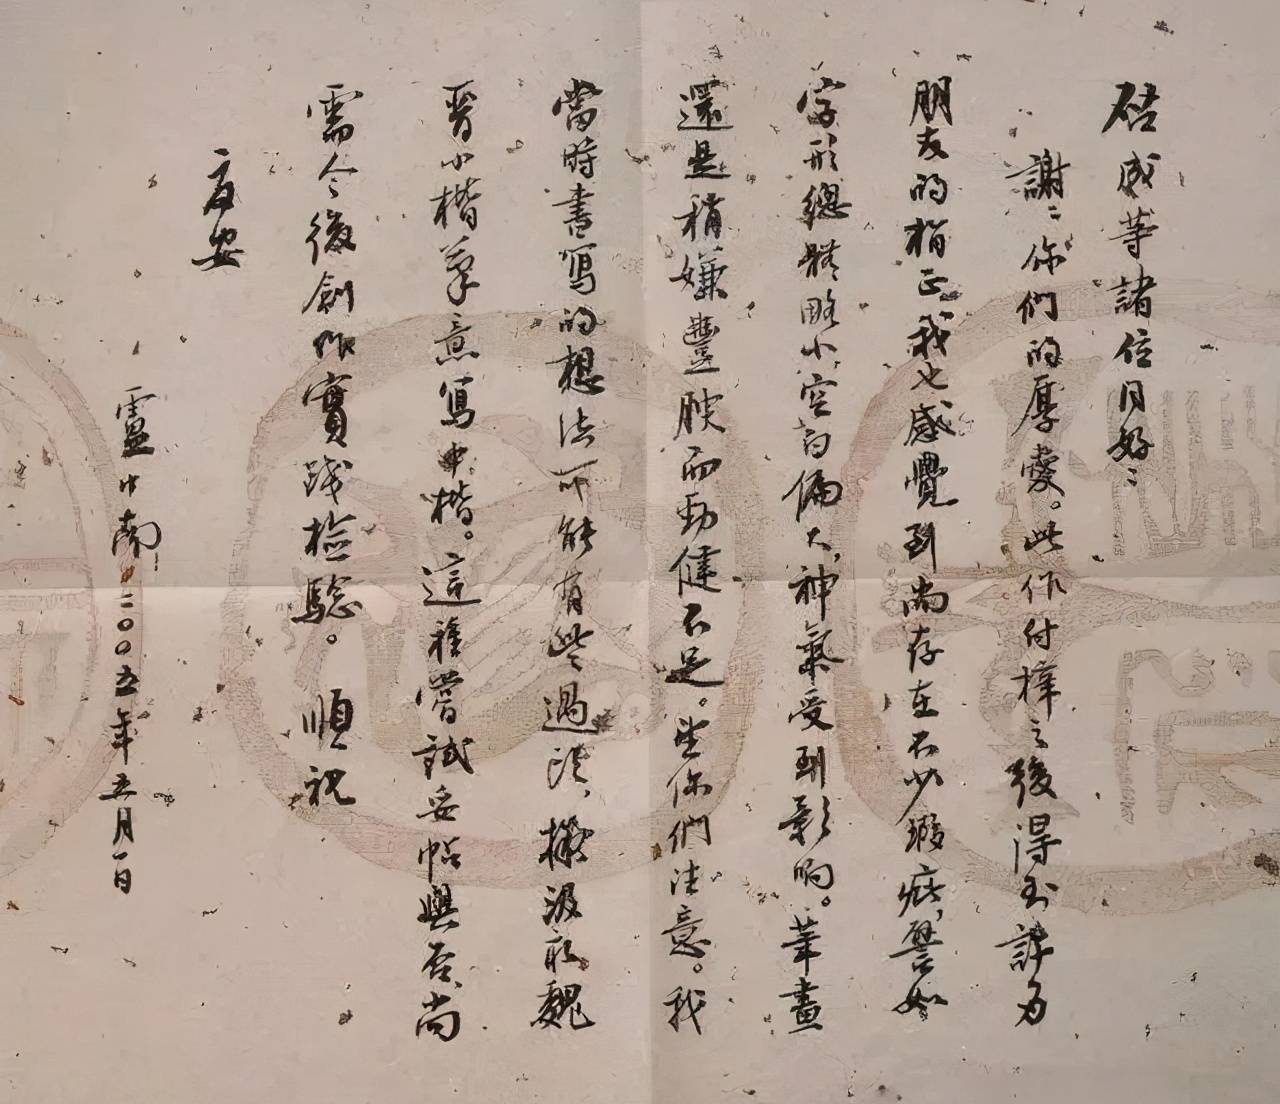 啓成等諸位同好:
謝〻你們的厚愛。此作付梓之後得到許多
朋友的指正,我也感覺到尚存在不少瑕疵,譬如
字形總體略小空白偏大,神氣受到影响。筆畫
還是稍嫌豐腴而勁健不足。望你們注意。我
當時書寫的想法可能有些過激,擬汲取魏
晉小楷筆意寫中楷。這種嘗試妥帖與否,尚
需今後創作實踐檢驗。 順祝
夏安
盧中南 二〇〇五年五月一日